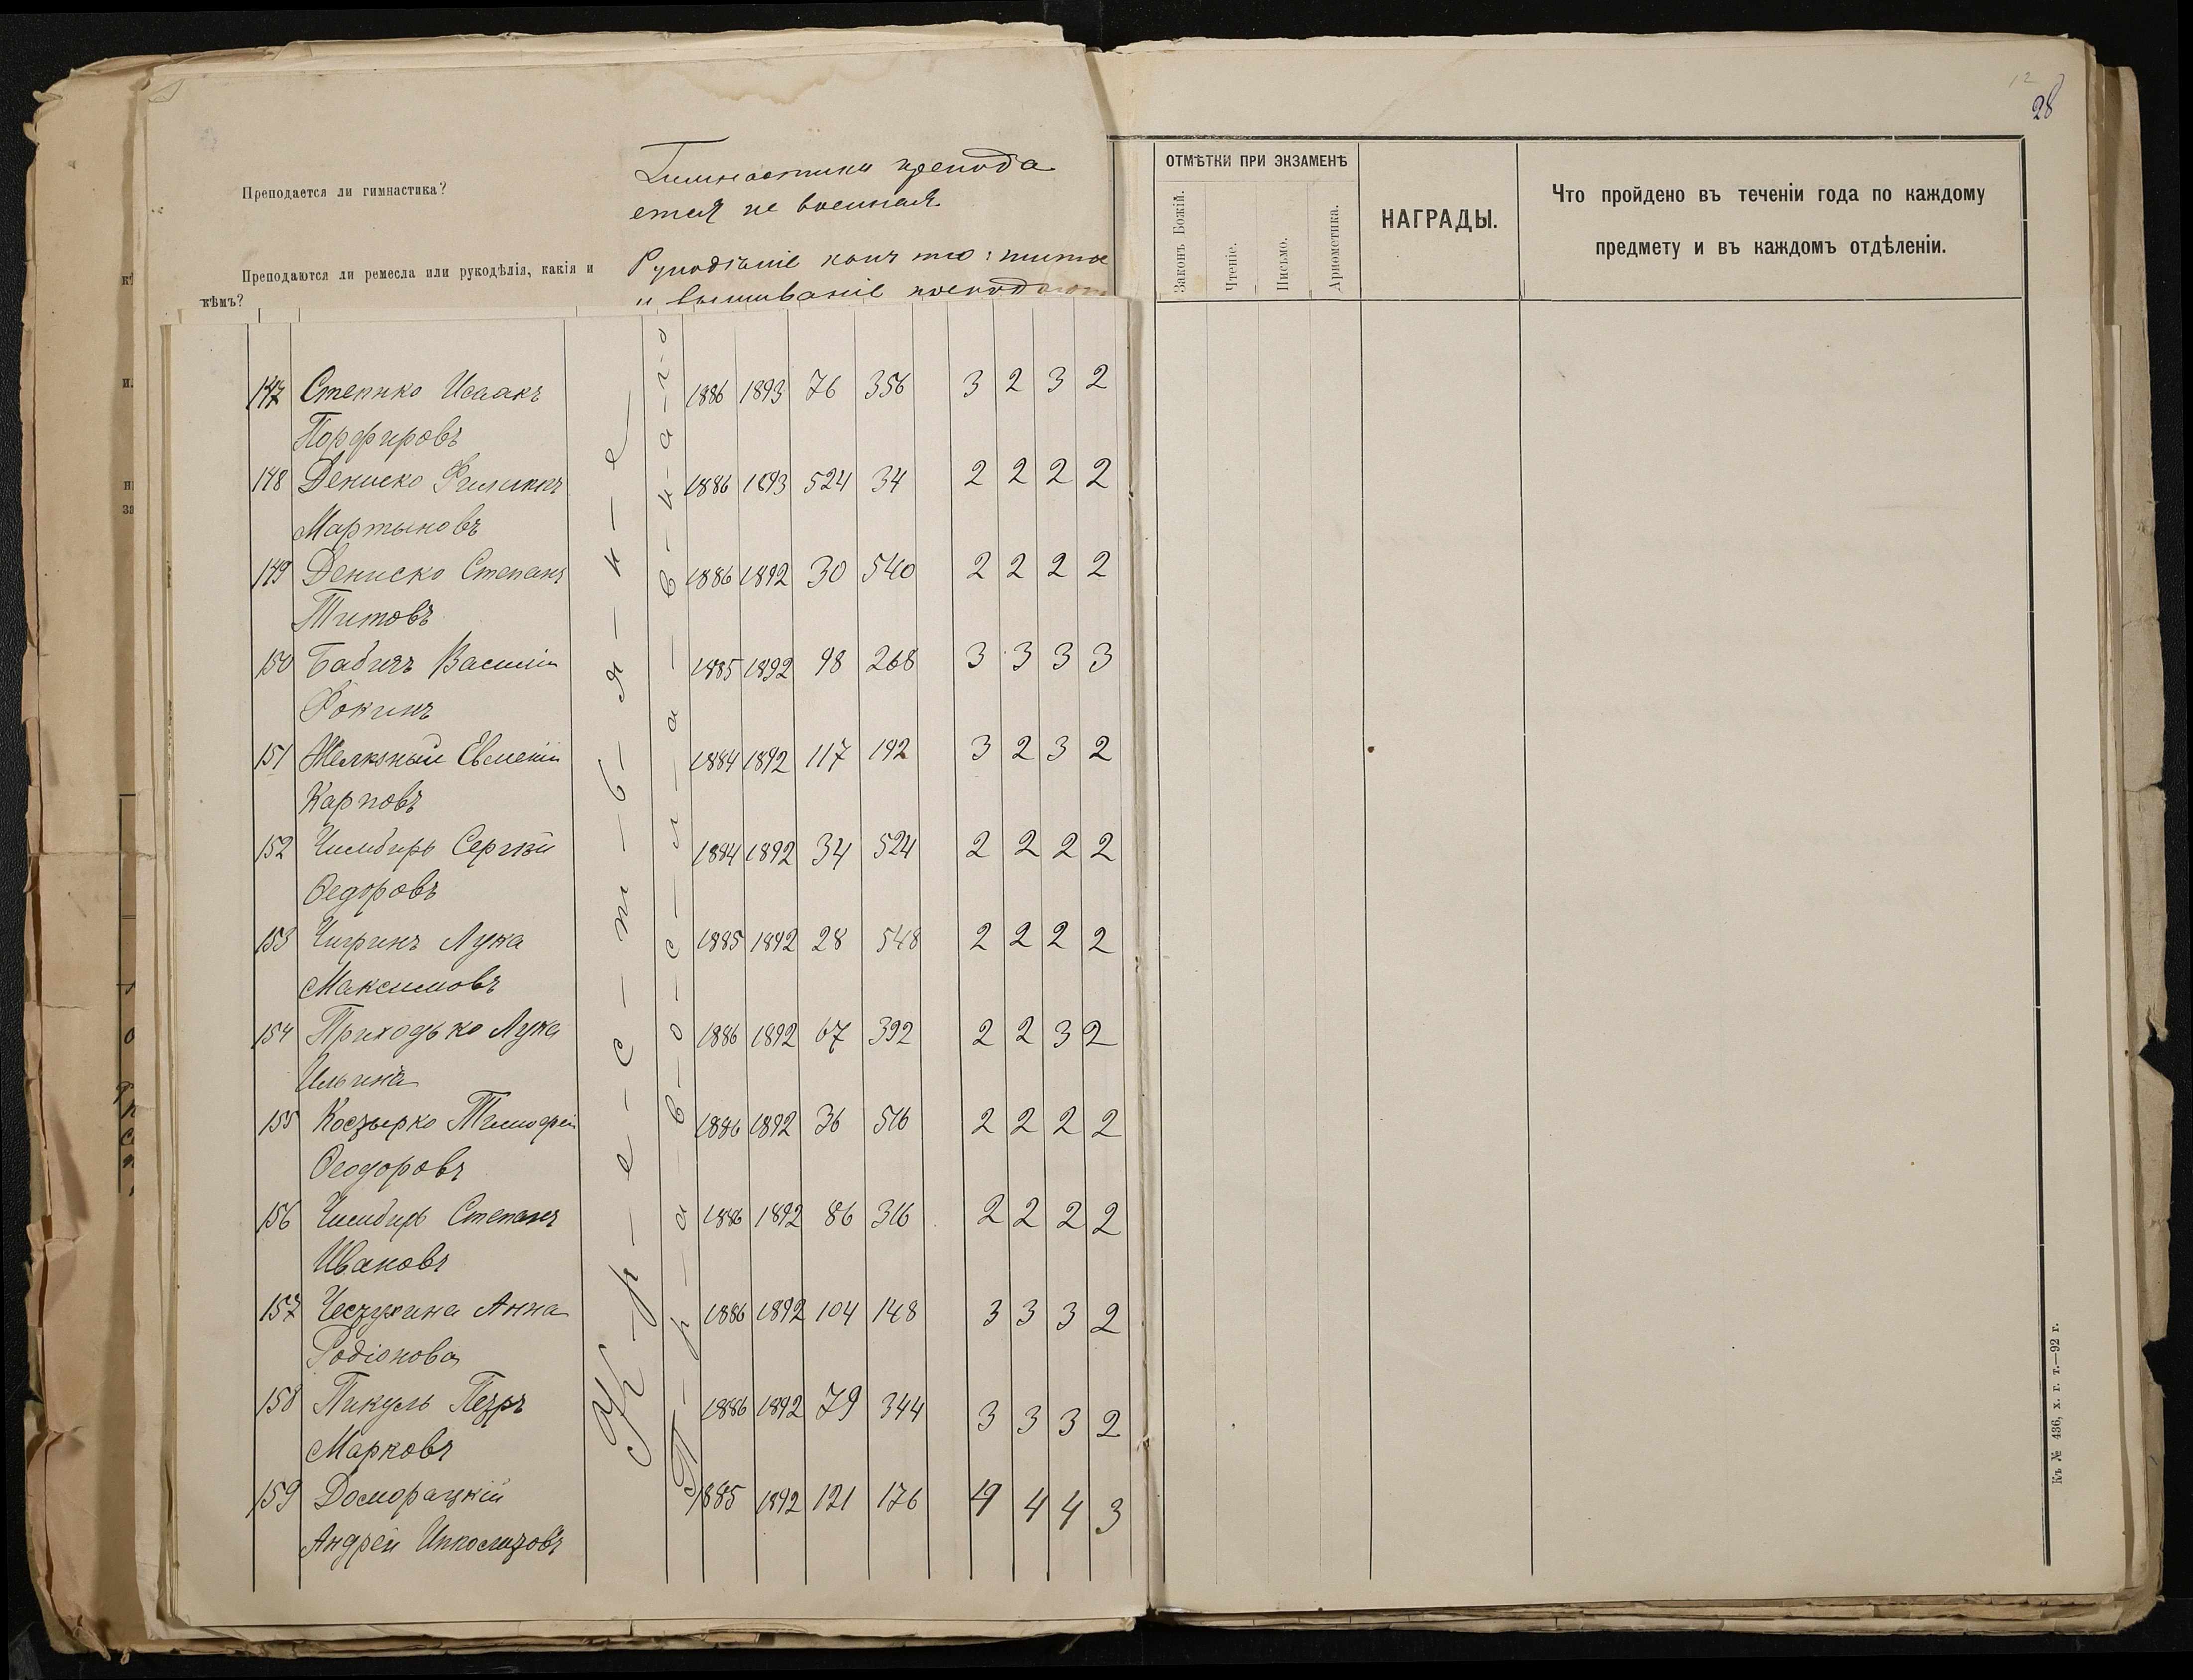 12
28
Преподается ли гимнастика?
Гимнастика препода
ется не военная
Преподаются ли ремесла или рукодѣлія, какія и
кѣмъ?
Рукодѣліе как то: шитье
и вышиваніе преподают
К-р-е-с-т-ь-я-н-е
П-р-а-в-о-с-л-а-в-н-а-г-о
147 Степико Исаакъ 1886 1893 76 356 3 2 3 2
Порфировъ
148 Дениско Филиппъ 1886 1893 524 34 2 2 2 2
Мартыновъ
149 Дениско Степанъ 1886 1892 30 540 2 2 2 2
Титовъ
150 Бабичъ Василій 1885 1892 98 268 3 3 3 3
Фокинъ
151 Евменій 1884 1892 117 192 3 2 3 2
Карповъ
152 Чимбирь Сергѣй 1884 1892 34 524 2 2 2 2
Ѳедоровъ
153 Чигринъ Лука 1885 1892 28 548 2 2 2 2
Максимовъ
154 Приходько Лука 1886 1892 67 392 2 2 3 2
Ильинъ
155 Козырко Тимофей 1886 1892 36 516 2 2 2 2
Ѳеодоровъ
156 Чимбирь Степанъ 1886 1892 86 316 2 2 2 2
Ивановъ
157 Анна 1886 1892 104 148 3 3 3 2
Родіонова
158 Пикуль Петръ 1886 1892 79 344 3 3 3 2
Марковъ
159 Доморацкій 1885 1892 121 176 4 4 4 3
Андрей
ОТМѢТКИ ПРИ ЭКЗАМЕНѢ
Законъ Божій.
Чтеніе.
Письмо.
Ариѳметика.
НАГРАДЫ.
Что пройдено въ теченіи года по каждому
предмету и въ каждомъ отдѣленіи.
Къ № 436, х. г. т.—92 г.